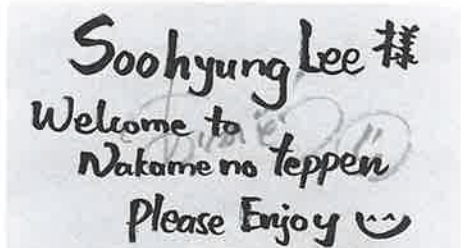 Soohyung Lee 様
Welcome to
Nakame no teppen
Please Enjoy